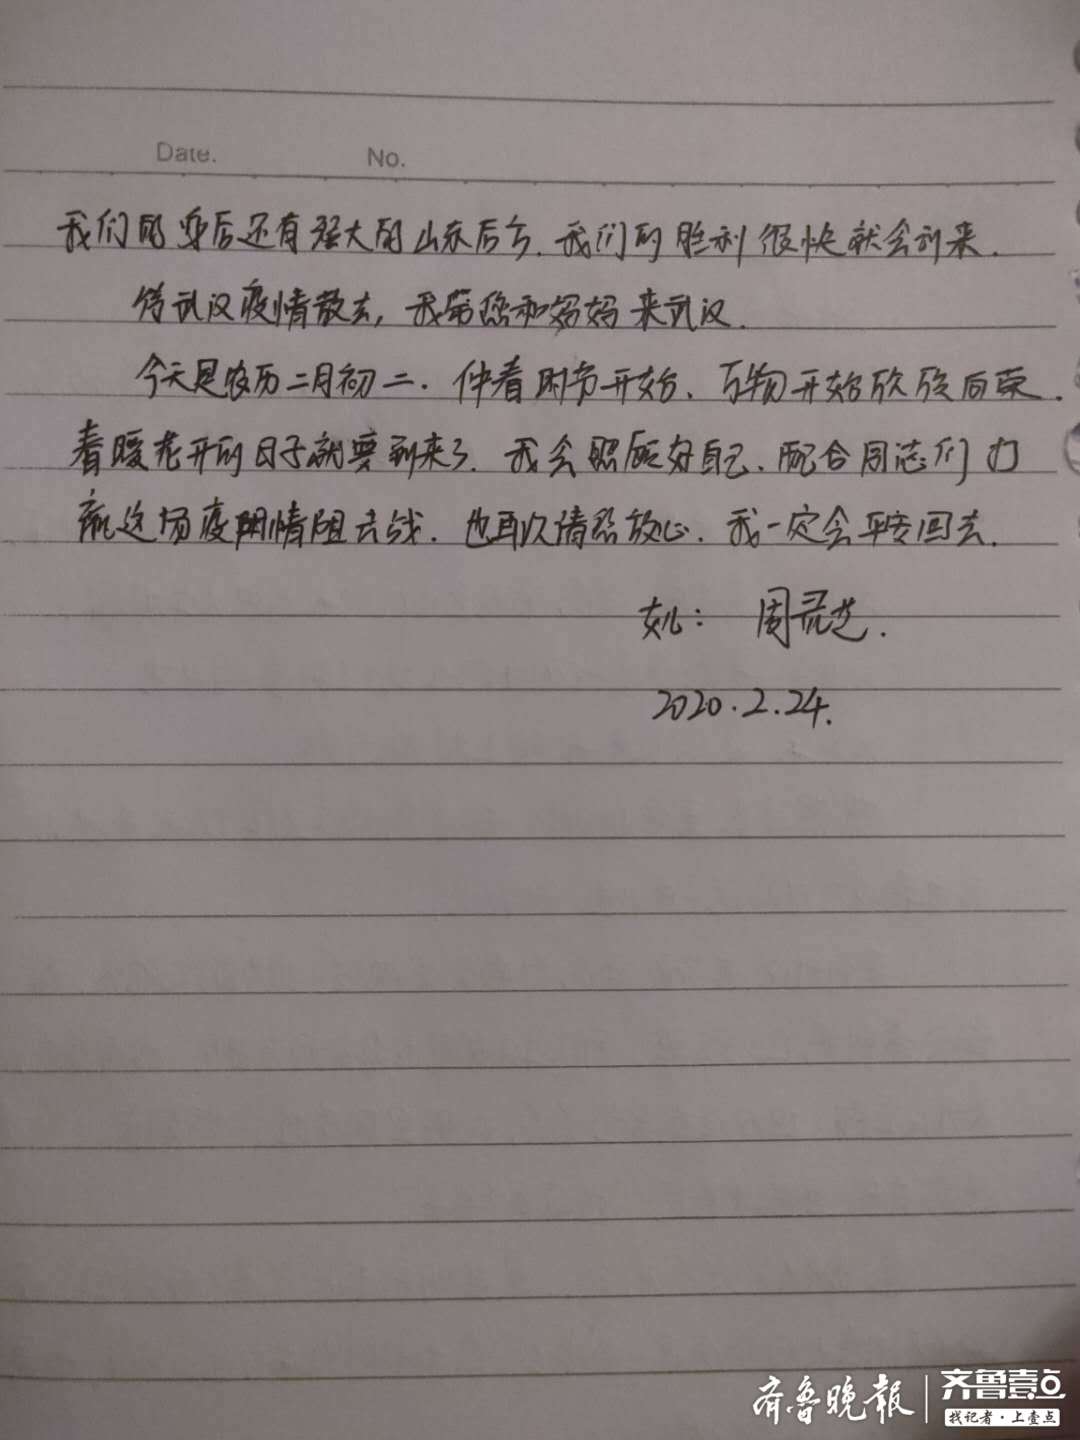 Date. No.
我们的身后还有强大的山东后方.我们的胜利很快就会到来.
待武汉疫情散去,我带您和妈妈来武汉.
今天是农历二月初二.仲春时节开始.万物开始欣欣向荣.
春暖花开的日子就要到来了.我会照顾好自己.配合同志们打
赢这场疫情阻击战.也再次请您放心.我一定会平安回去.
女儿: 周灵芝.
2020.2.24.
齐鲁晚报 齐鲁壹点
找记者·上壹点